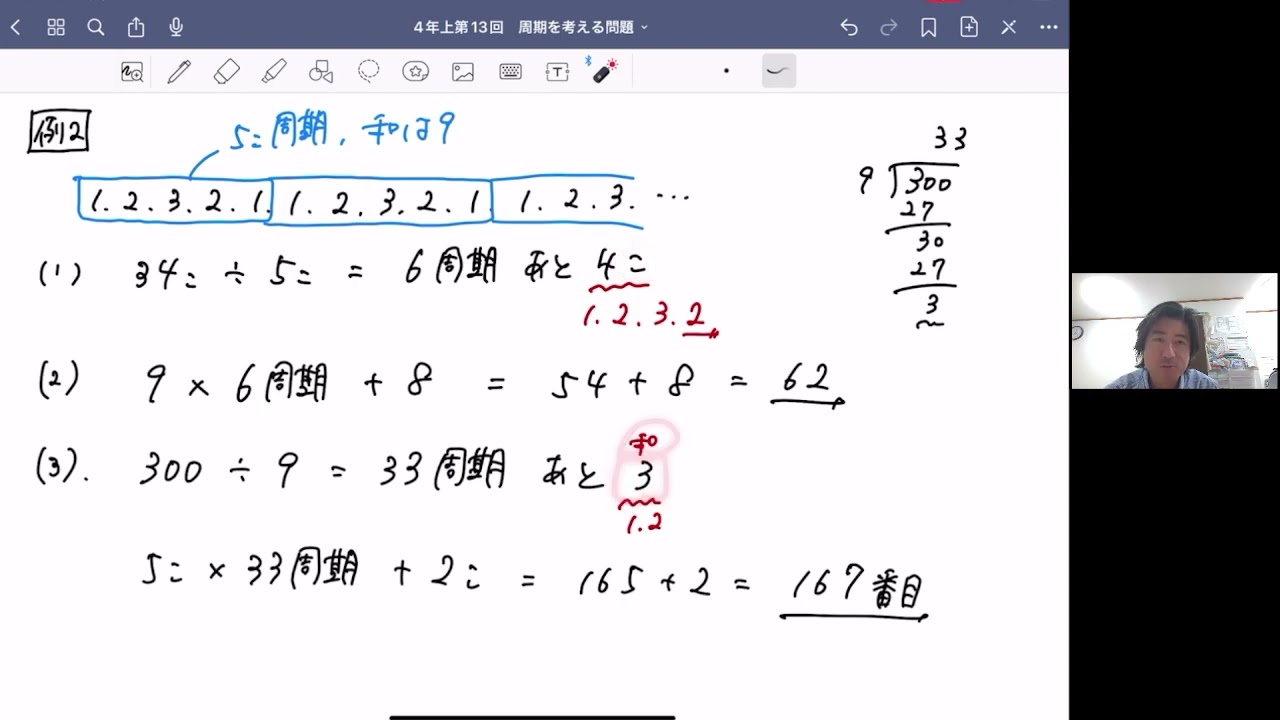 4年上第13回 周期を考える問題
例2
5こ周期, 和は9
1. 2. 3. 2. 1. 1. 2. 3. 2. 1 1. 2. 3. …
(1) 34こ ÷ 5こ = 6周期 あと 4こ
1. 2. 3. 2
(2) 9 × 6周期 + 8 = 54 + 8 = 62
(3). 300 ÷ 9 = 33周期 あと 3
和
1. 2
5こ × 33周期 + 2こ = 165 + 2 = 167番目
33
9 300
27
30
27
3